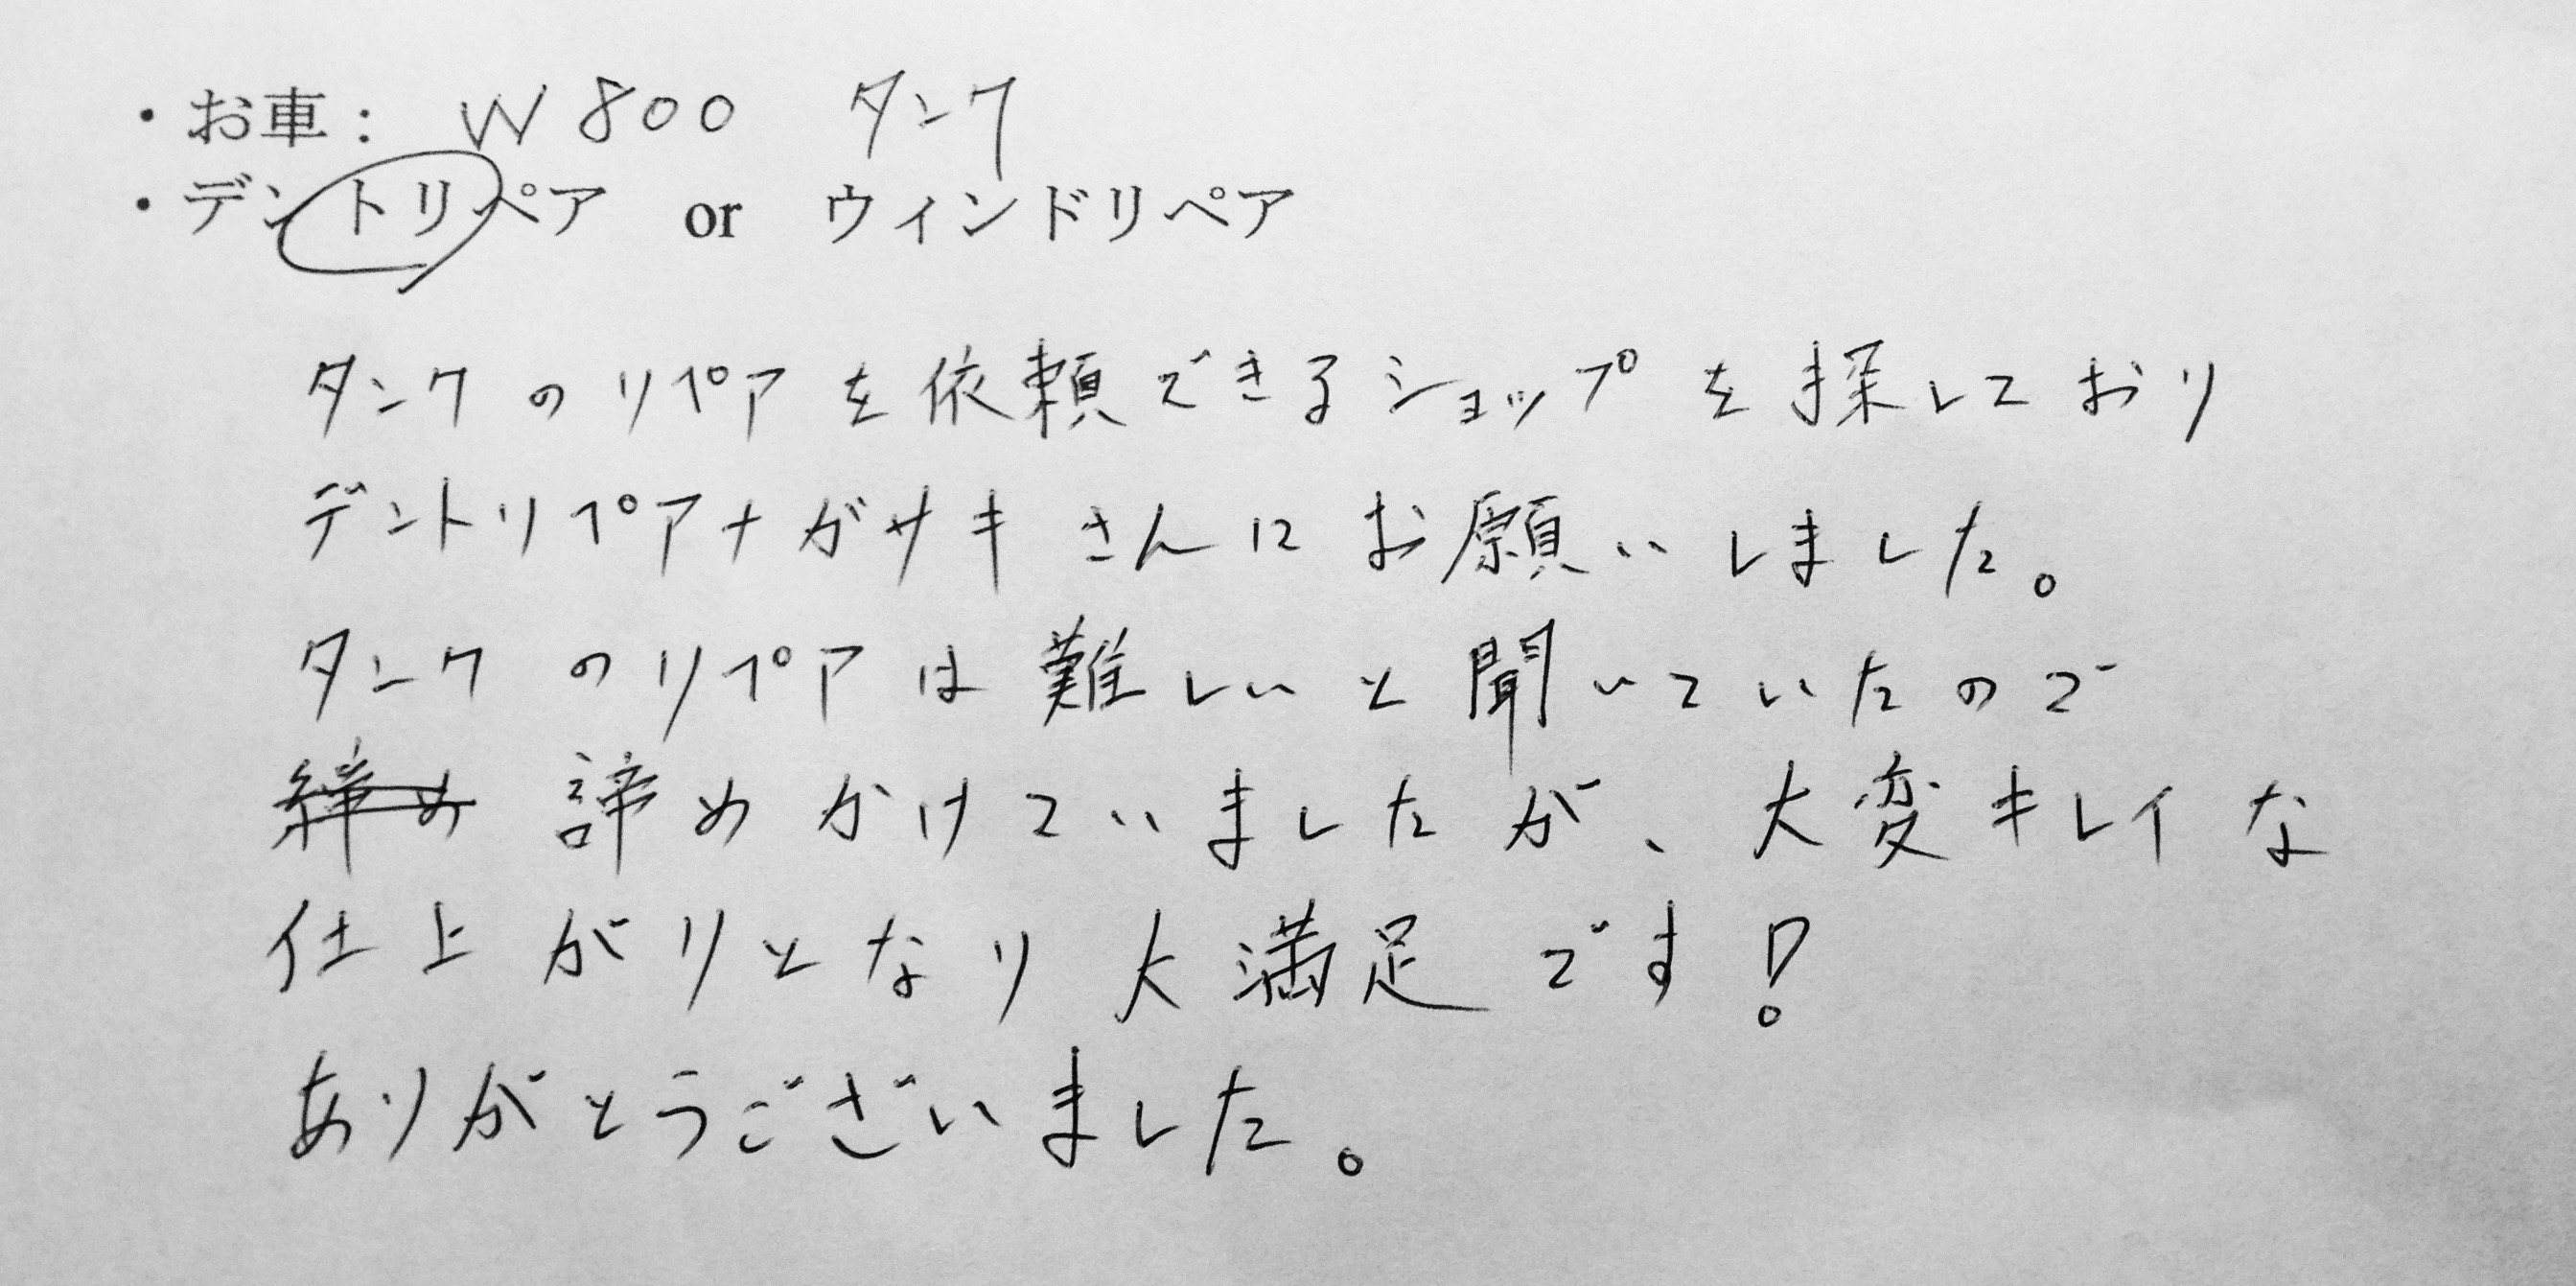 ・お車： W800 タンク
・デントリペア or ウィンドリペア
タンクのリペアを依頼できるショップを探しており
デントリペアナガサキさんにお願いしました。
タンクのリペアは難しいと聞いていたので
締め 諦めかけていましたが、大変キレイな
仕上がりとなり大満足です!
ありがとうございました。